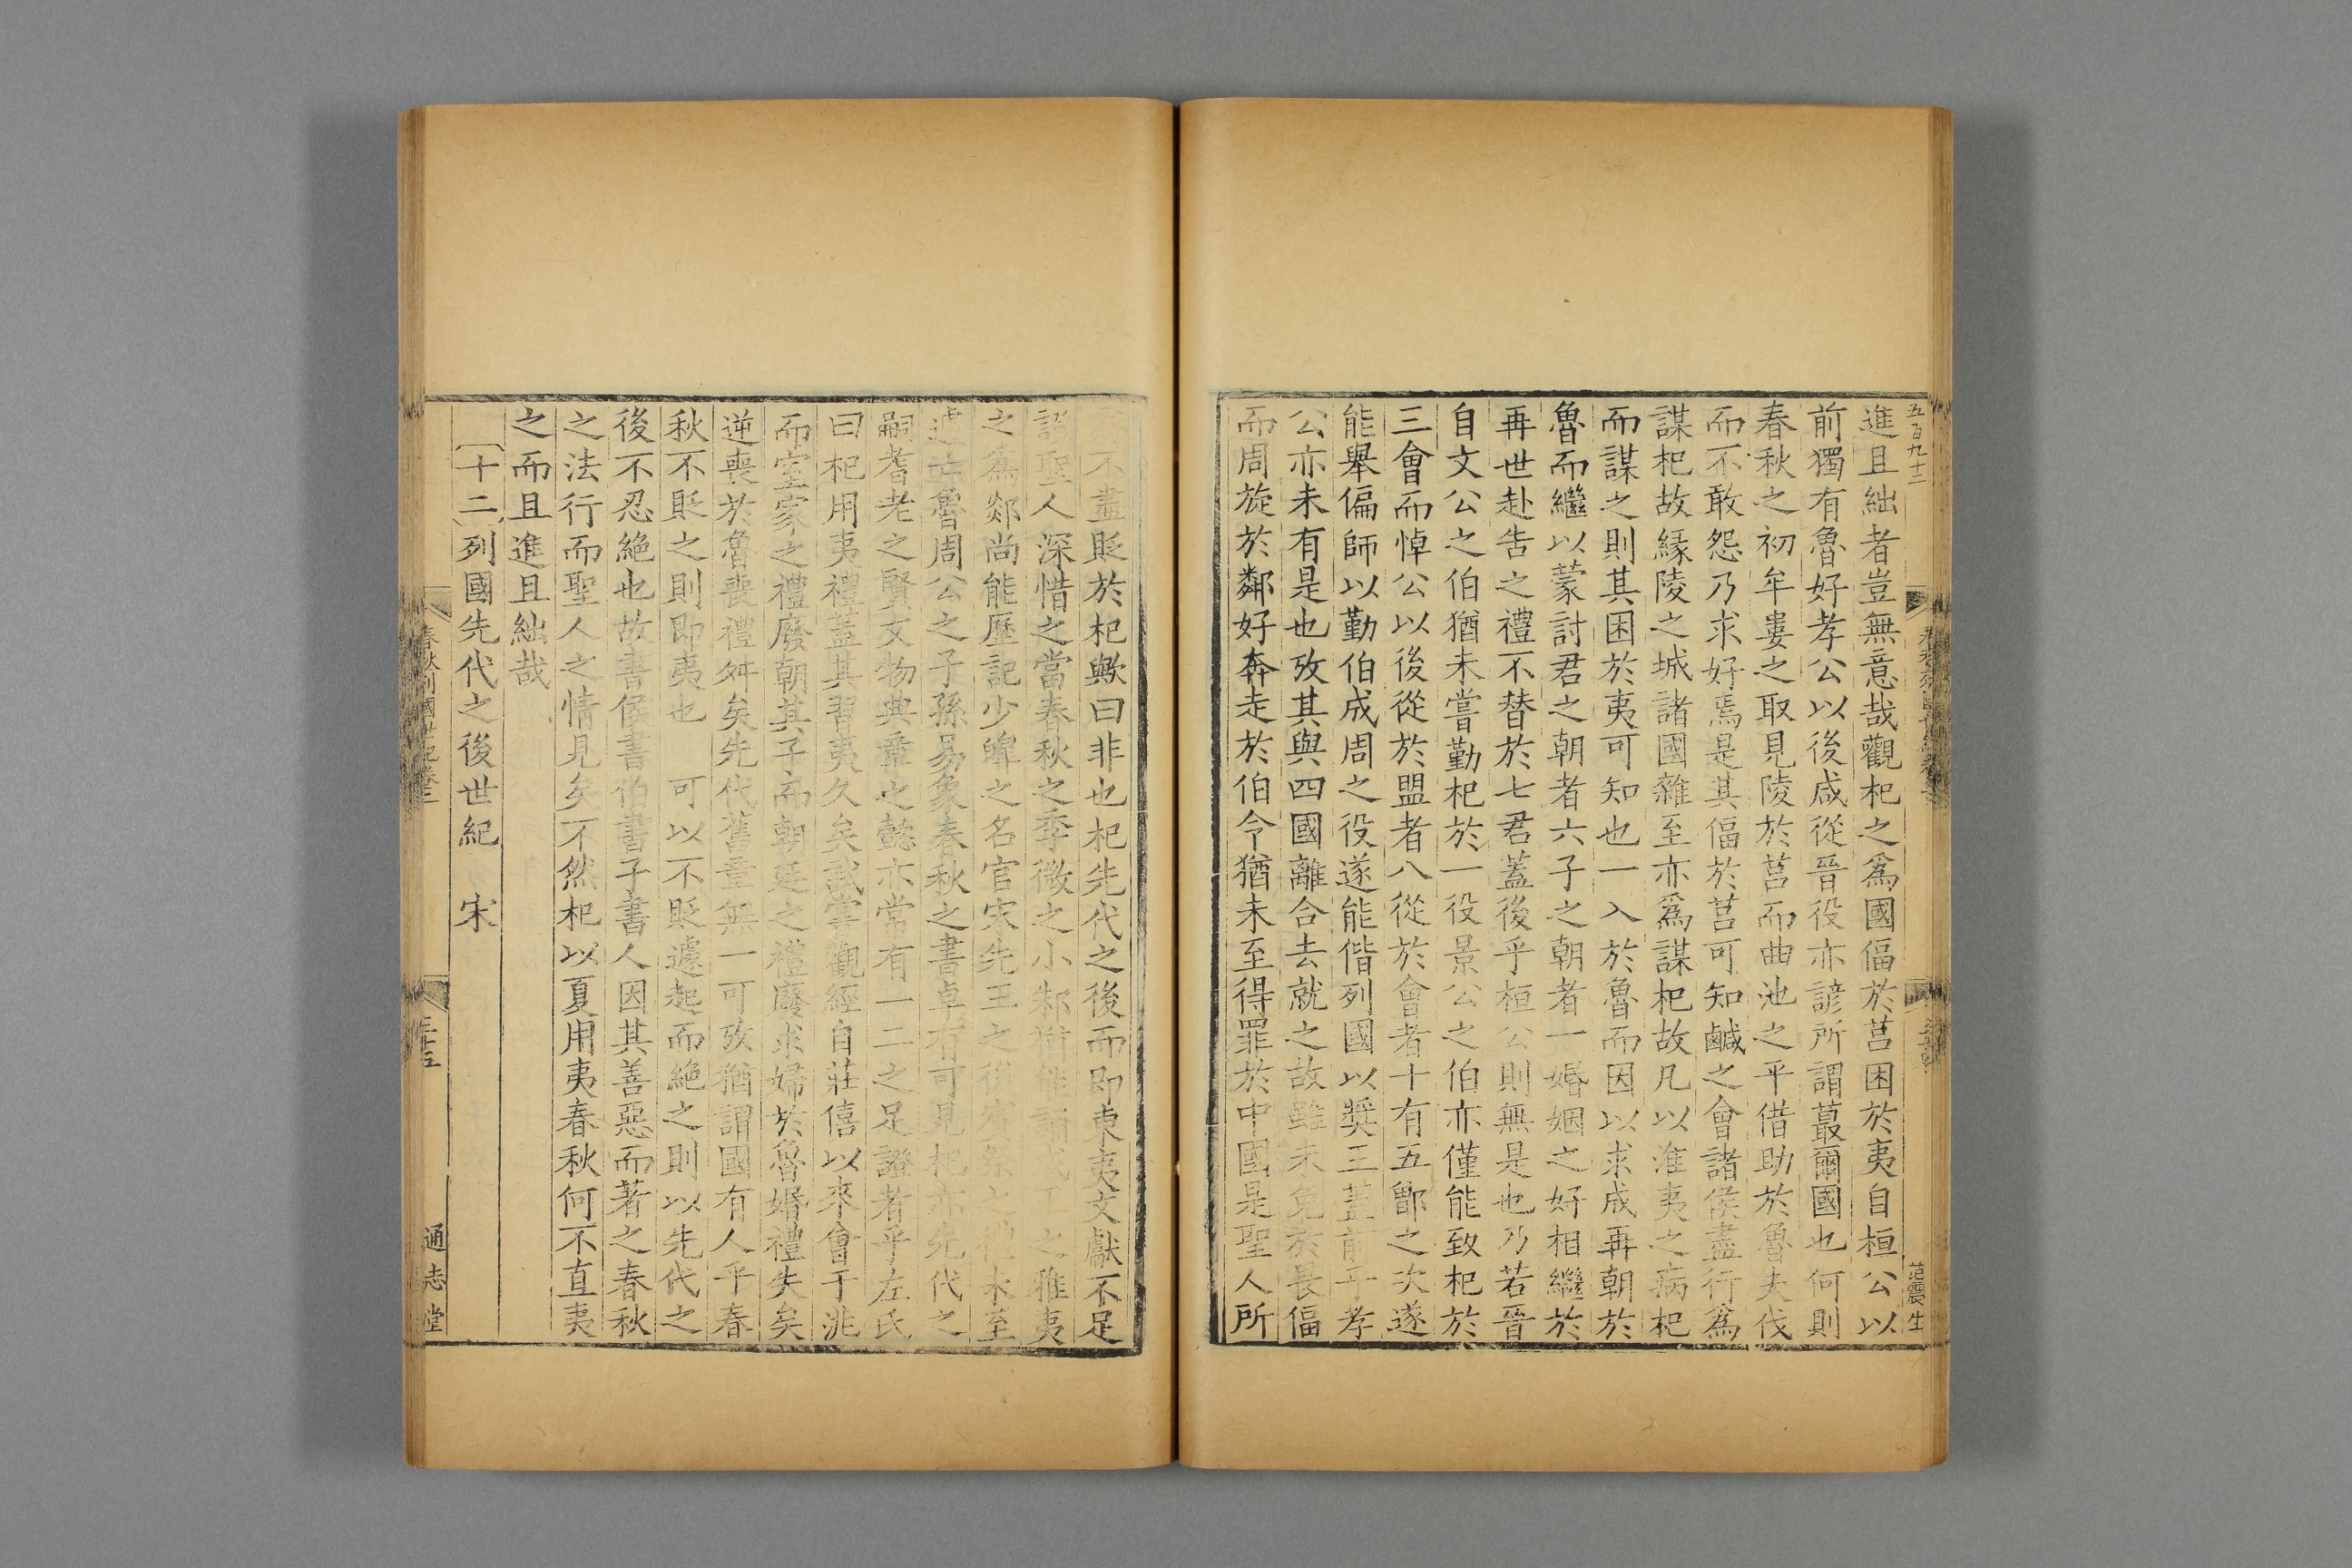 五百九十二
進且絀者豈無意哉觀杞之爲國偪於莒困於夷自桓公以
前獨有魯好孝公以後咸從晉役亦諺所謂蕞爾國也何則
春秋之初牟婁之取見陵於莒而曲池之平借助於魯夫伐
而不敢怨乃求好焉是其偪於莒可知鹹之會諸侯盡行爲
謀杞故緣陵之城諸國雜至亦爲謀杞故凡以淮夷之病杞
而謀之則其困於夷可知也一入於魯而因以求成再朝於
魯而繼以蒙討君之朝者六子之朝者一婚姻之好相繼於
再世赴告之禮不替於七君蓋後乎桓公則無是也乃若晉
自文公之伯猶未嘗勤杞於一役景公之伯亦僅能致杞於
三會而悼公以後從於盟者八從於會者十有五鄫之次遂
能舉偏師以勤伯成周之役遂能偕列國以奬王蓋前乎孝
公亦未有是也攷其與四國離合去就之故雖未免於畏偪
而周旋於鄰好奔走於伯令猶未至得罪於中國是聖人所
范震生
不盡貶於杞歟曰非也杞先代之後而即東夷文獻不足
聖人深惜之當春秋之季微之小邾猶能誦之雅夷
之爲郯尚能歷記少皥之名官宋先王之後未至
遽亡魯周公之子孫易象春秋之書卓有可見杞亦先代之
嗣耆老之賢文物典章之懿亦當有一二之足證者乎左氏
曰杞用夷禮蓋其習夷久矣試掌觀經自莊僖以來會于洮
而室家之禮廢朝其子而朝廷之禮廢求婦於魯婚禮失矣
逆喪於魯喪禮舛矣先代舊章無一可攷猶謂國有人乎春
秋不貶之則即夷也 可以不貶遽起而絶之則以先代之
後不忍絶也故書侯書伯書子書人因其善惡而著之春秋
之法行而聖人之情見矣不然杞以夏用夷春秋何不直夷
之而且進且絀哉
〔十二〕列國先代之後世紀 宋
春秋列國世紀卷二
三十五
通志堂